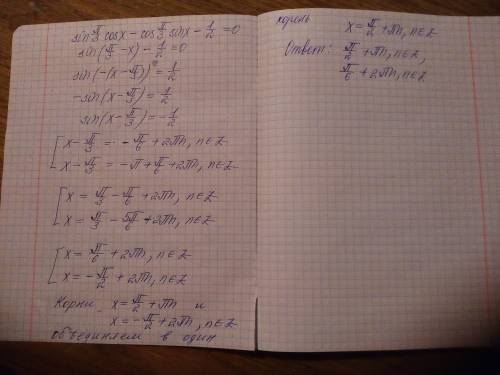 sin π/3 cosx - cos π/3 sinx - 1/2 = 0
sin(π/3 - x) - 1/2 = 0
sin(-(x - π/3)) = 1/2
-sin(x - π/3) = 1/2
sin(x - π/3) = -1/2
[x - π/3 = - π/6 + 2πn, n∈Z
x - π/3 = -π + π/6 + 2πn, n∈Z
[x = π/3 - π/6 + 2πn, n∈Z
x = π/3 - 5π/6 + 2πn, n∈Z
[x = π/6 + 2πn, n∈Z
x = - π/2 + 2πn, n∈Z
Корни x = π/2 + πn и
x = - π/2 + 2πn, n∈Z
объединяем в один
корень
x = π/2 + πn, n∈Z
Ответ: π/2 + πn, n∈Z,
π/6 + 2πn, n∈Z